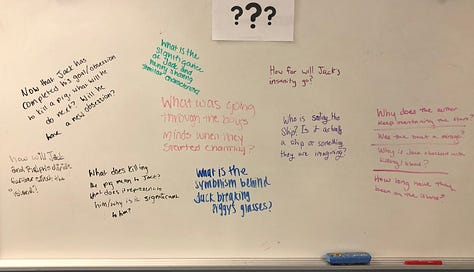 ???
Now that Jack has
completed his goal/obsession
to kill a pig, what will he
do next? Will he
have a new obsession?
What is the
significance
of Jack and
sharing
similar characteristics
How far will Jack's
insanity go?
What was going
through the boys
minds when they
started chanting?
Who is sailing the
Ship? Is it actually
a ship or something
they are imagining?
Why does the author
keep mentioning the
Was the boat a mirage?
Why is Jack obsessed with
killing/blood?
How long have they
been on the island?
How will Jack
and Ralph's
the
island?
What does killing
the pig mean to Jack?
What does it represent to
him/why is it significant
to him?
What is the
symbolism behind
Jack breaking
Piggy's glasses?